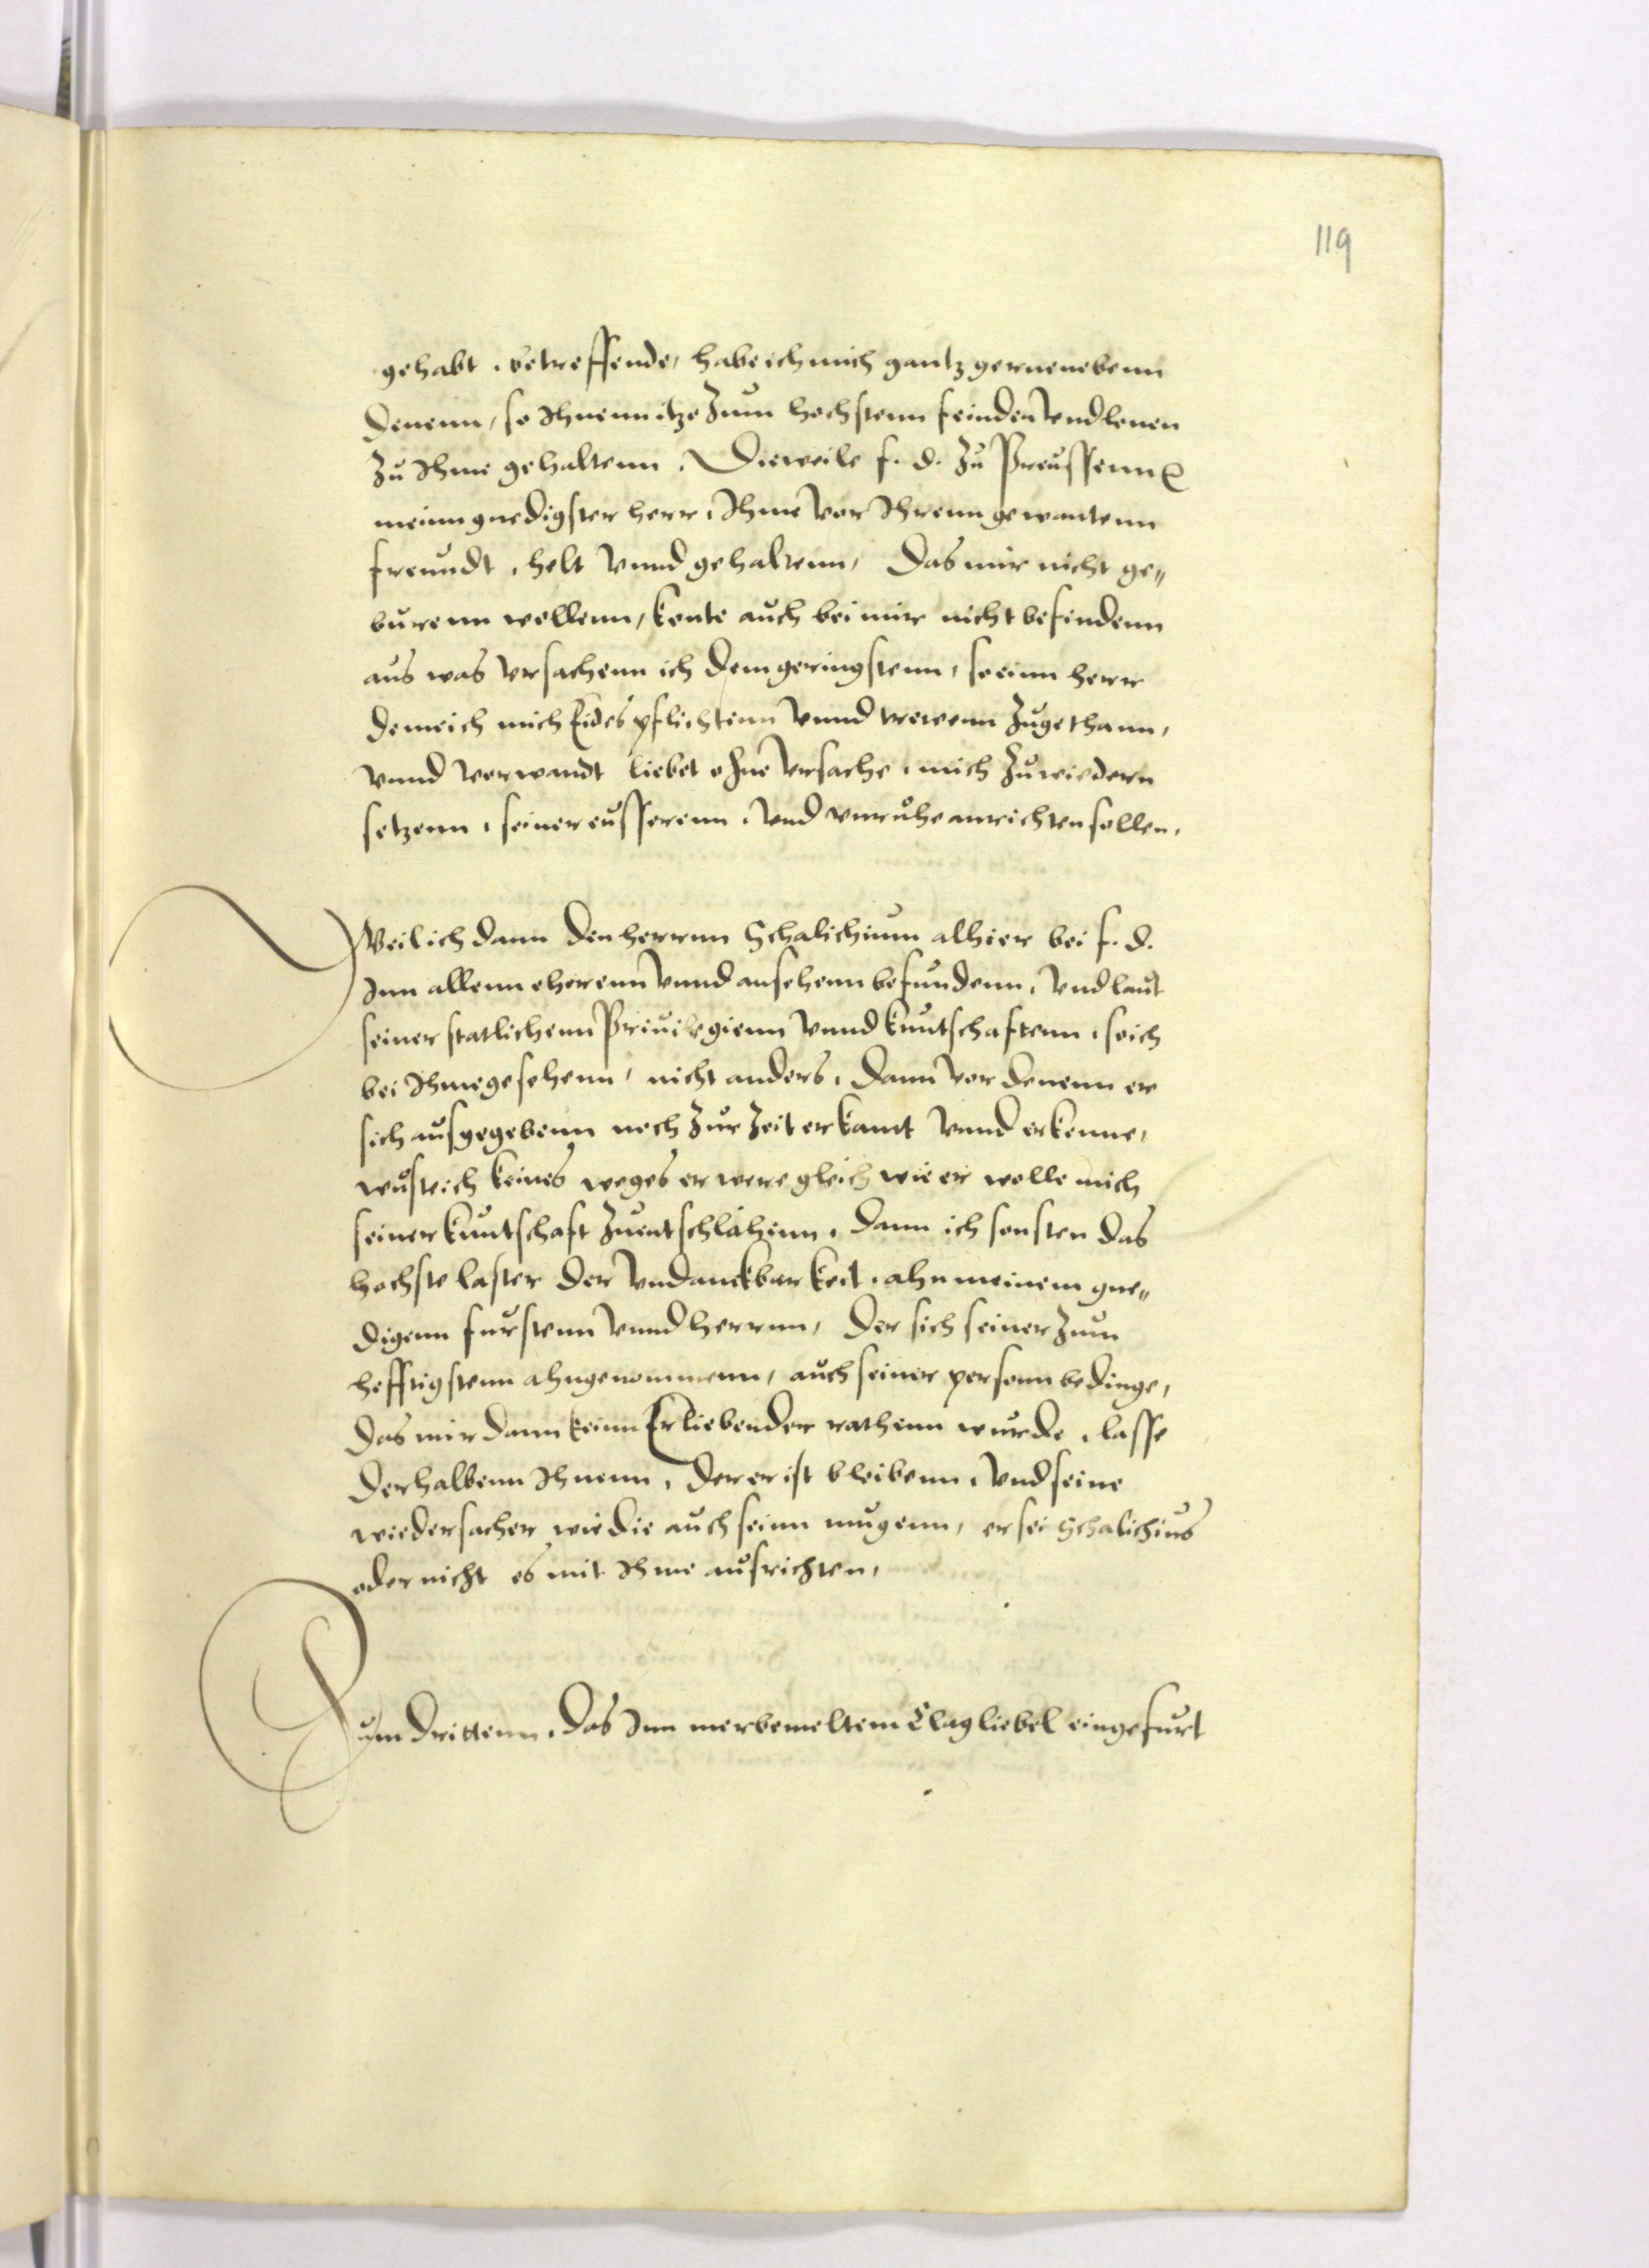 119
gehabt, betreffende, habe ich mich gantz gerne nebenn
denenn, so Ihnenn itzo Zum hochstenn feinden vnd
Zu Ihme gehaltenn, Dieweile f. d. Zu Preussenn
meinn gnedigster herr, Ihme vor Ihrenn gewantenn
freundt, helt vnnd gehaltenn, Das mir nicht ge„
burenn wollenn, konte auch bei mir nicht befindenn
aus was vrsachenn ich dem geringstenn, so einn herr
dem ich mich Eides pflichtenn vnnd trewenn Zugethann,
vnnd verwandt liebet ohne vrsache, mich Zuwiedern
setzenn, seiner eusserenn, vnd vnruhe anrichten sollen,
Weil ich dann den herrnn Schalichium alhier bei f. d.
Inn allenn eherenn vnnd ansehenn befundenn, vnd laut
seiner statlichenn Priuilegienn vnnd kuntschaftenn, so ich
bei Ihme gesehenn, nicht anders, dann vor denenn er
sich ausgegebenn noch Zur Zeit erkant vnnd erkenne,
wuste ich keines weges er were gleich wie er wolle mich
seiner kuntschaft Zuentschlahenn, dann ich sonsten das
hochste laster der vndanckbarkeit, ahn meinem gne„
digenn furstenn vnnd herrnn, der sich seiner Zum
hefftigstenn ahngenommenn, auch seiner personn bedinge,
das mir dann keinn Erliebender rathenn wurde, lasse
derhalbenn Ihnenn, der er ist bleibenn, vnd seine
wiedersacher wie die auch seinn mugenn, er sei Schalichius
oder nicht es mit Ihme ausrichten,
Zum drittenn, das Inn merbemeltem Clagliebel eingefurt